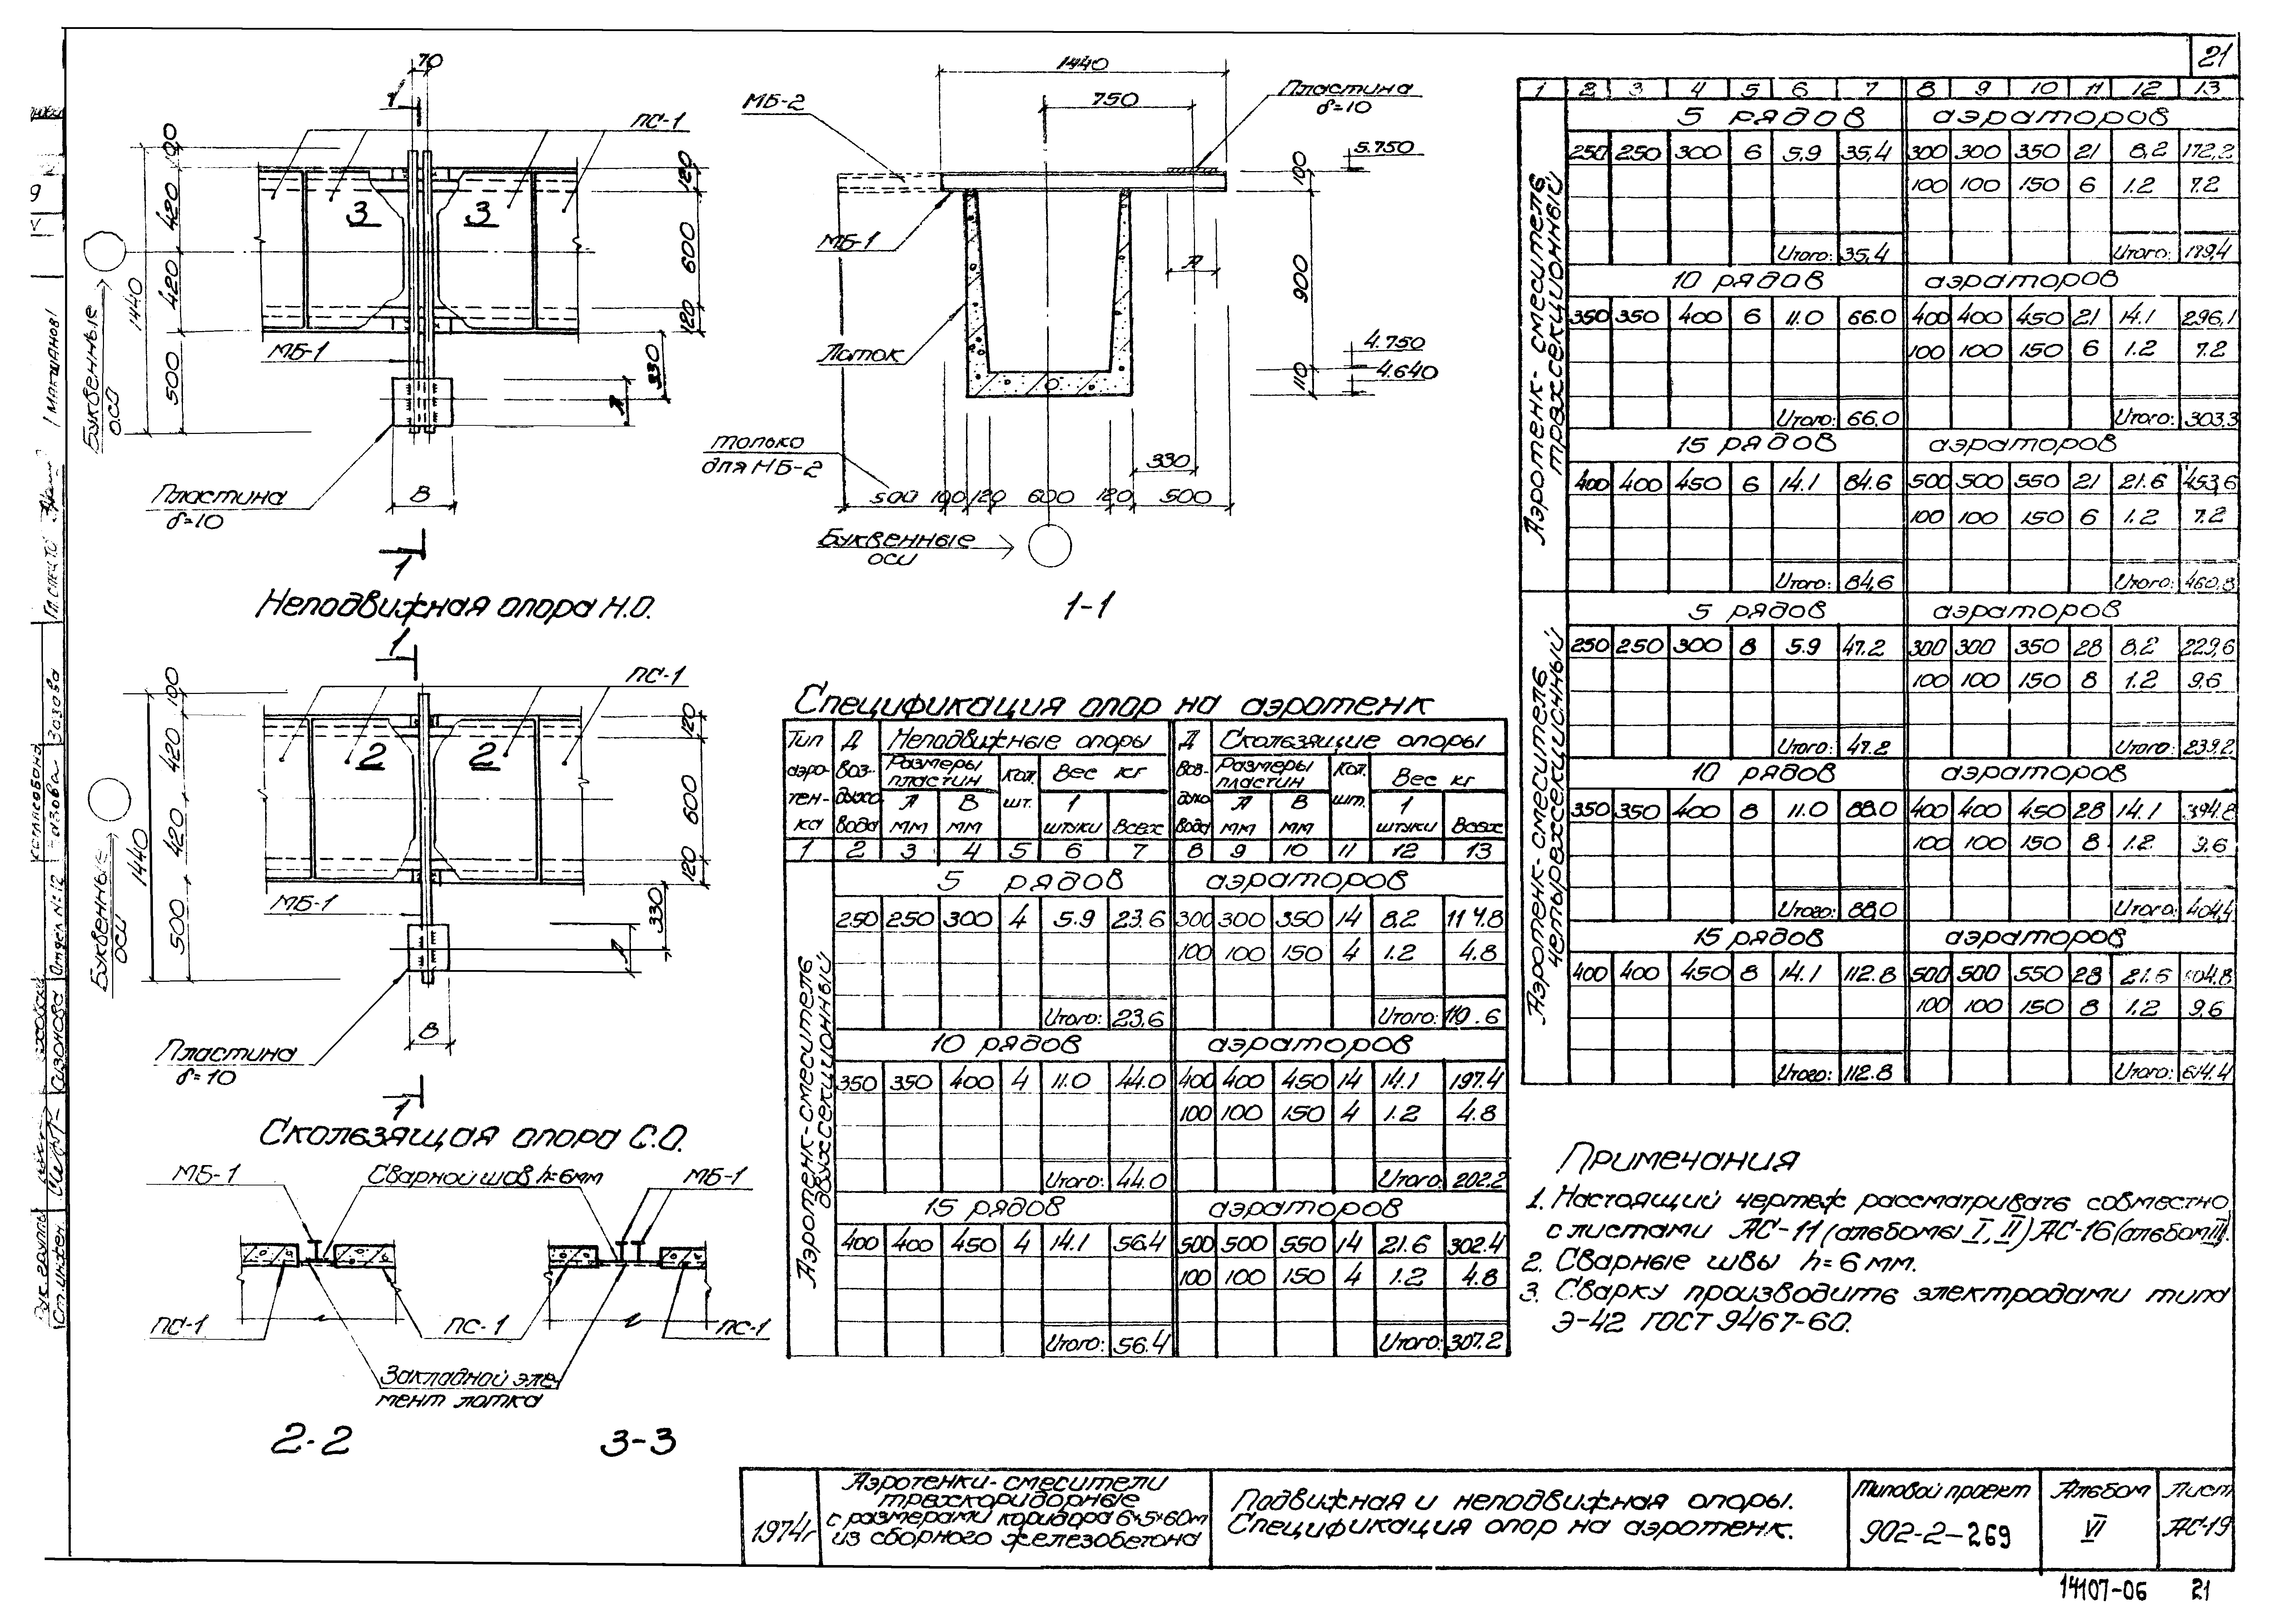 21
70
1
ПС-1
3 3
100
420
420
500
1440
120
600
120
330
А
МБ-1
Буквенные
оси
Пластина
δ=10
В
1
Неподвижная опора Н.О.
1440
750
Пластина
δ=10
МБ-2
5.750
100
МБ-1
А
900
Лоток
4.750
4.640
110
только
для МБ-2
330
500 100 120 600 120 500
Буквенные
оси
1-1
1
ПС-1
2 2
100
420
420
500
1440
120
600
120
330
А
МБ-1
Буквенные
оси
Пластина
δ=10
В
1
Скользящая опора С.О.
МБ-1 Сварной шов h=6мм МБ-1
ПС-1 ПС-1 ПС-1
Закладной эле-
мент лотка
2-2 3-3
Спецификация опор на аэротенк
Тип аэро-тен-ка Д воз-духо вода Неподвижные опоры Д воз-духо вода Скользящие опоры
Размеры пластин Кол. шт. Вес кг Размеры пластин Кол. шт. Вес кг
А мм В мм 1 штуки Всех А мм В мм 1 штуки Всех
1 2 3 4 5 6 7 8 9 10 11 12 13
Аэротенк-смеситель
двухсекционный
5 рядов аэраторов
250 250 300 4 5.9 23.6 300 300 350 14 8,2 114.8
100 100 150 4 1.2 4.8
Итого: 23,6 Итого: 119.6
10 рядов аэраторов
350 350 400 4 11.0 44.0 400 400 450 14 14.1 197.4
100 100 150 4 1.2 4.8
Итого: 44.0 Итого: 202.2
15 рядов аэраторов
400 400 450 4 14.1 56.4 500 500 550 14 21.6 302.4
100 100 150 4 1.2 4.8
Итого: 56.4 Итого: 307.2
1 2 3 4 5 6 7 8 9 10 11 12 13
Аэротенк-смеситель
трехсекционный
5 рядов аэраторов
250 250 300 6 5,9 35,4 300 300 350 21 8,2 172,2
100 100 150 6 1.2 7.2
Итого: 35,4 Итого: 179,4
10 рядов аэраторов
350 350 400 6 11.0 66.0 400 400 450 21 14.1 296,1
100 100 150 6 1.2 7.2
Итого: 66.0 Итого: 303.3
15 рядов аэраторов
400 400 450 6 14.1 84.6 500 500 550 21 21.6 453,6
100 100 150 6 1.2 7.2
Итого: 84,6 Итого: 460,8
Аэротенк-смеситель
четырехсекционный
5 рядов аэраторов
250 250 300 8 5.9 47.2 300 300 350 28 8,2 229,6
100 100 150 8 1.2 9.6
Итого: 47.2 Итого: 239.2
10 рядов аэраторов
350 350 400 8 11.0 88.0 400 400 450 28 14.1 394.8
100 100 150 8 1.2 9.6
Итого: 88.0 Итого: 404,4
15 рядов аэраторов
400 400 450 8 14.1 112.8 500 500 550 28 21.6 604.8
100 100 150 8 1.2 9.6
Итого: 112.8 Итого: 614.4
Примечания
1. Настоящий чертеж рассматривать совместно
с листами АС-11 (альбомы I, II) АС-16 (альбом III).
2. Сварные швы h=6мм.
3. Сварку производить электродами типа
Э-42 ГОСТ 9467-60.
1974г
Аэротенки-смесители
трехкоридорные
с размерами коридора 6×5×60м
из сборного железобетона
Подвижная и неподвижная опоры.
Спецификация опор на аэротенк.
Типовой проект
902-2-269
Альбом
VI
Лист
АС-19
14107-06 21
Рук. группы
Ст. инжен.
Сизонова
Отдел №12
Зозова
согласовано